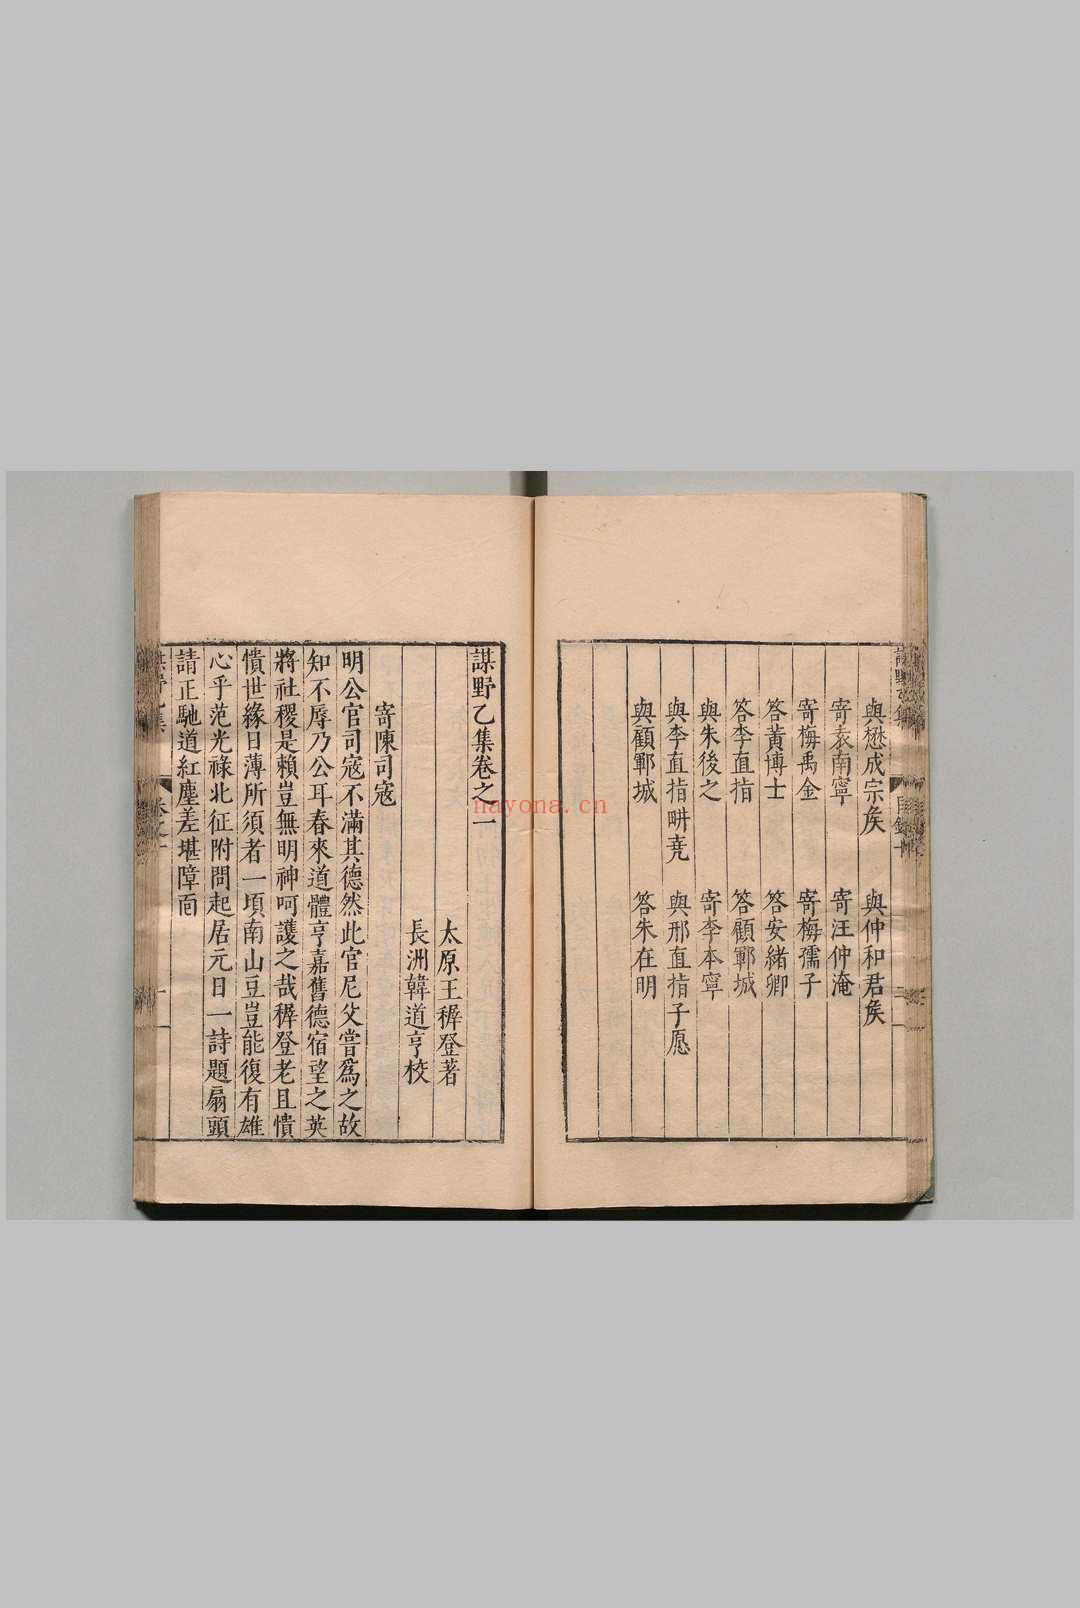 與懋成宗矦　與仲和君矦
寄袁南寧　寄汪仲淹
寄梅禹金　寄梅孺子
答黃博士　答安緒卿
答李直指　答顧鄆城
與朱後之　寄李本寧
與李直指畊堯　與邢直指子愿
與顧鄆城　答朱在明
謀野乙集卷之一
太原王穉登著
長洲韓道亨校
寄陳司寇
明公官司寇不滿其德然此官尼父嘗爲之故
知不辱乃公耳春來道體亨嘉舊德宿望之英
將社稷是賴豈無明神呵護之哉穉登老且憒
憒世緣日薄所須者一頃南山豆豈能復有雄
心乎范光祿北征附問起居元日一詩題扇頭
請正馳道紅塵差堪障面
謀野乙集
卷之一
目錄
nayona.cn